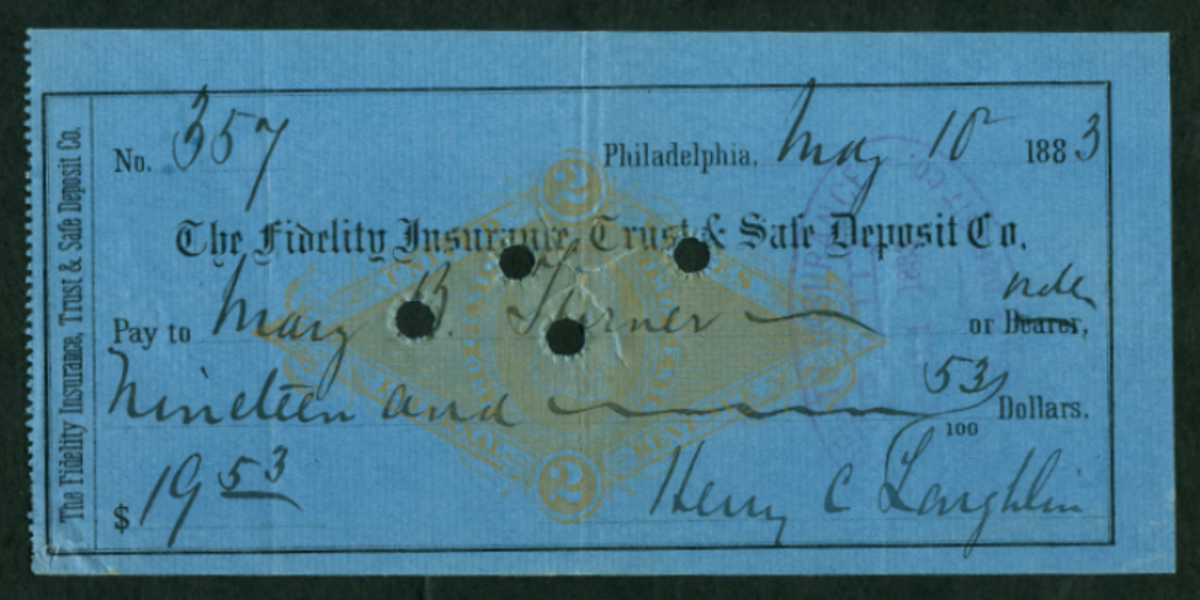 The Fidelity Insurance, Trust & Safe Deposit Co.
No. 357 Philadelphia, May 10 1883
The Fidelity Insurance, Trust & Safe Deposit Co.
order
Pay to Mary B. Turner or Bearer,
Nineteen and 53/100 Dollars.
$19 53 Henry C Laughlin
2
2